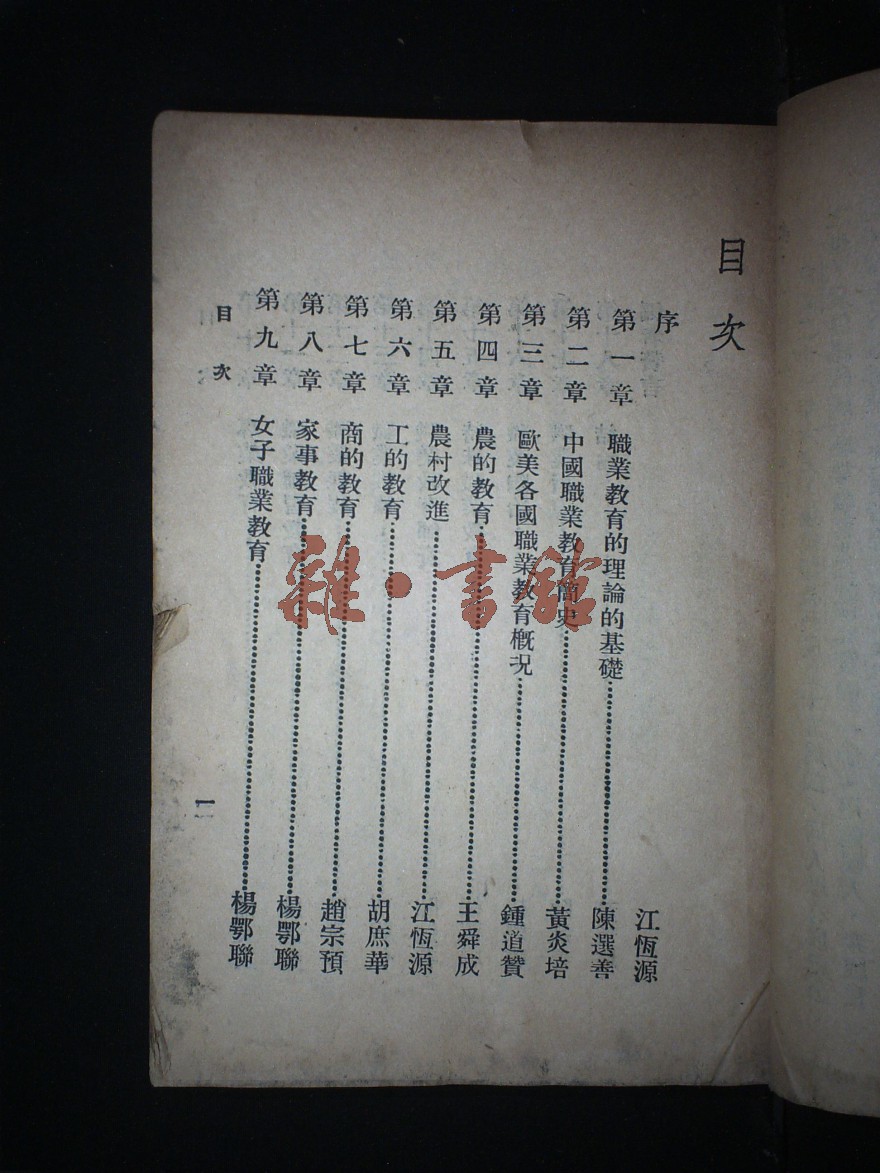 目次
序 江恆源
第一章 職業教育的理論的基礎 陳選善
第二章 中國職業教育簡史 黃炎培
第三章 歐美各國職業教育概況 鍾道贊
第四章 農的教育 王舜成
第五章 農村改進 江恆源
第六章 工的教育 胡庶華
第七章 商的教育 趙宗預
第八章 家事教育 楊鄂聯
第九章 女子職業教育 楊鄂聯
目次 一
雜·書館